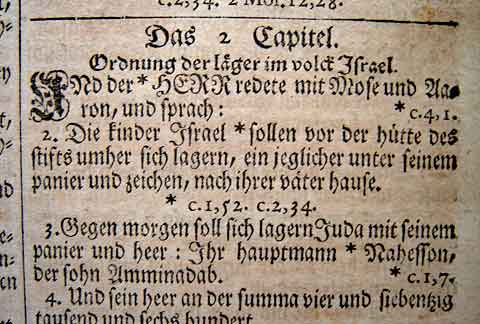 c.2,34. 2 Mos.12,28.
Das 2 Capitel.
Ordnung der läger im volck Israel.
UNd der * HERR redete mit Mose und Aa-
ron, und sprach: * c.4,1.
2. Die kinder Israel * sollen vor der hütte des
stifts umher sich lagern, ein jeglicher unter seinem
panier und zeichen, nach ihrer väter hause.
* c.1,52. c.2,34.
3. Gegen morgen soll sich lagern Juda mit seinem
panier und heer: Ihr hauptmann * Nahesson,
der sohn Amminadab. * c.1,7.
4. Und sein heer an der summa vier und siebentzig
tausend und sechs hundert.